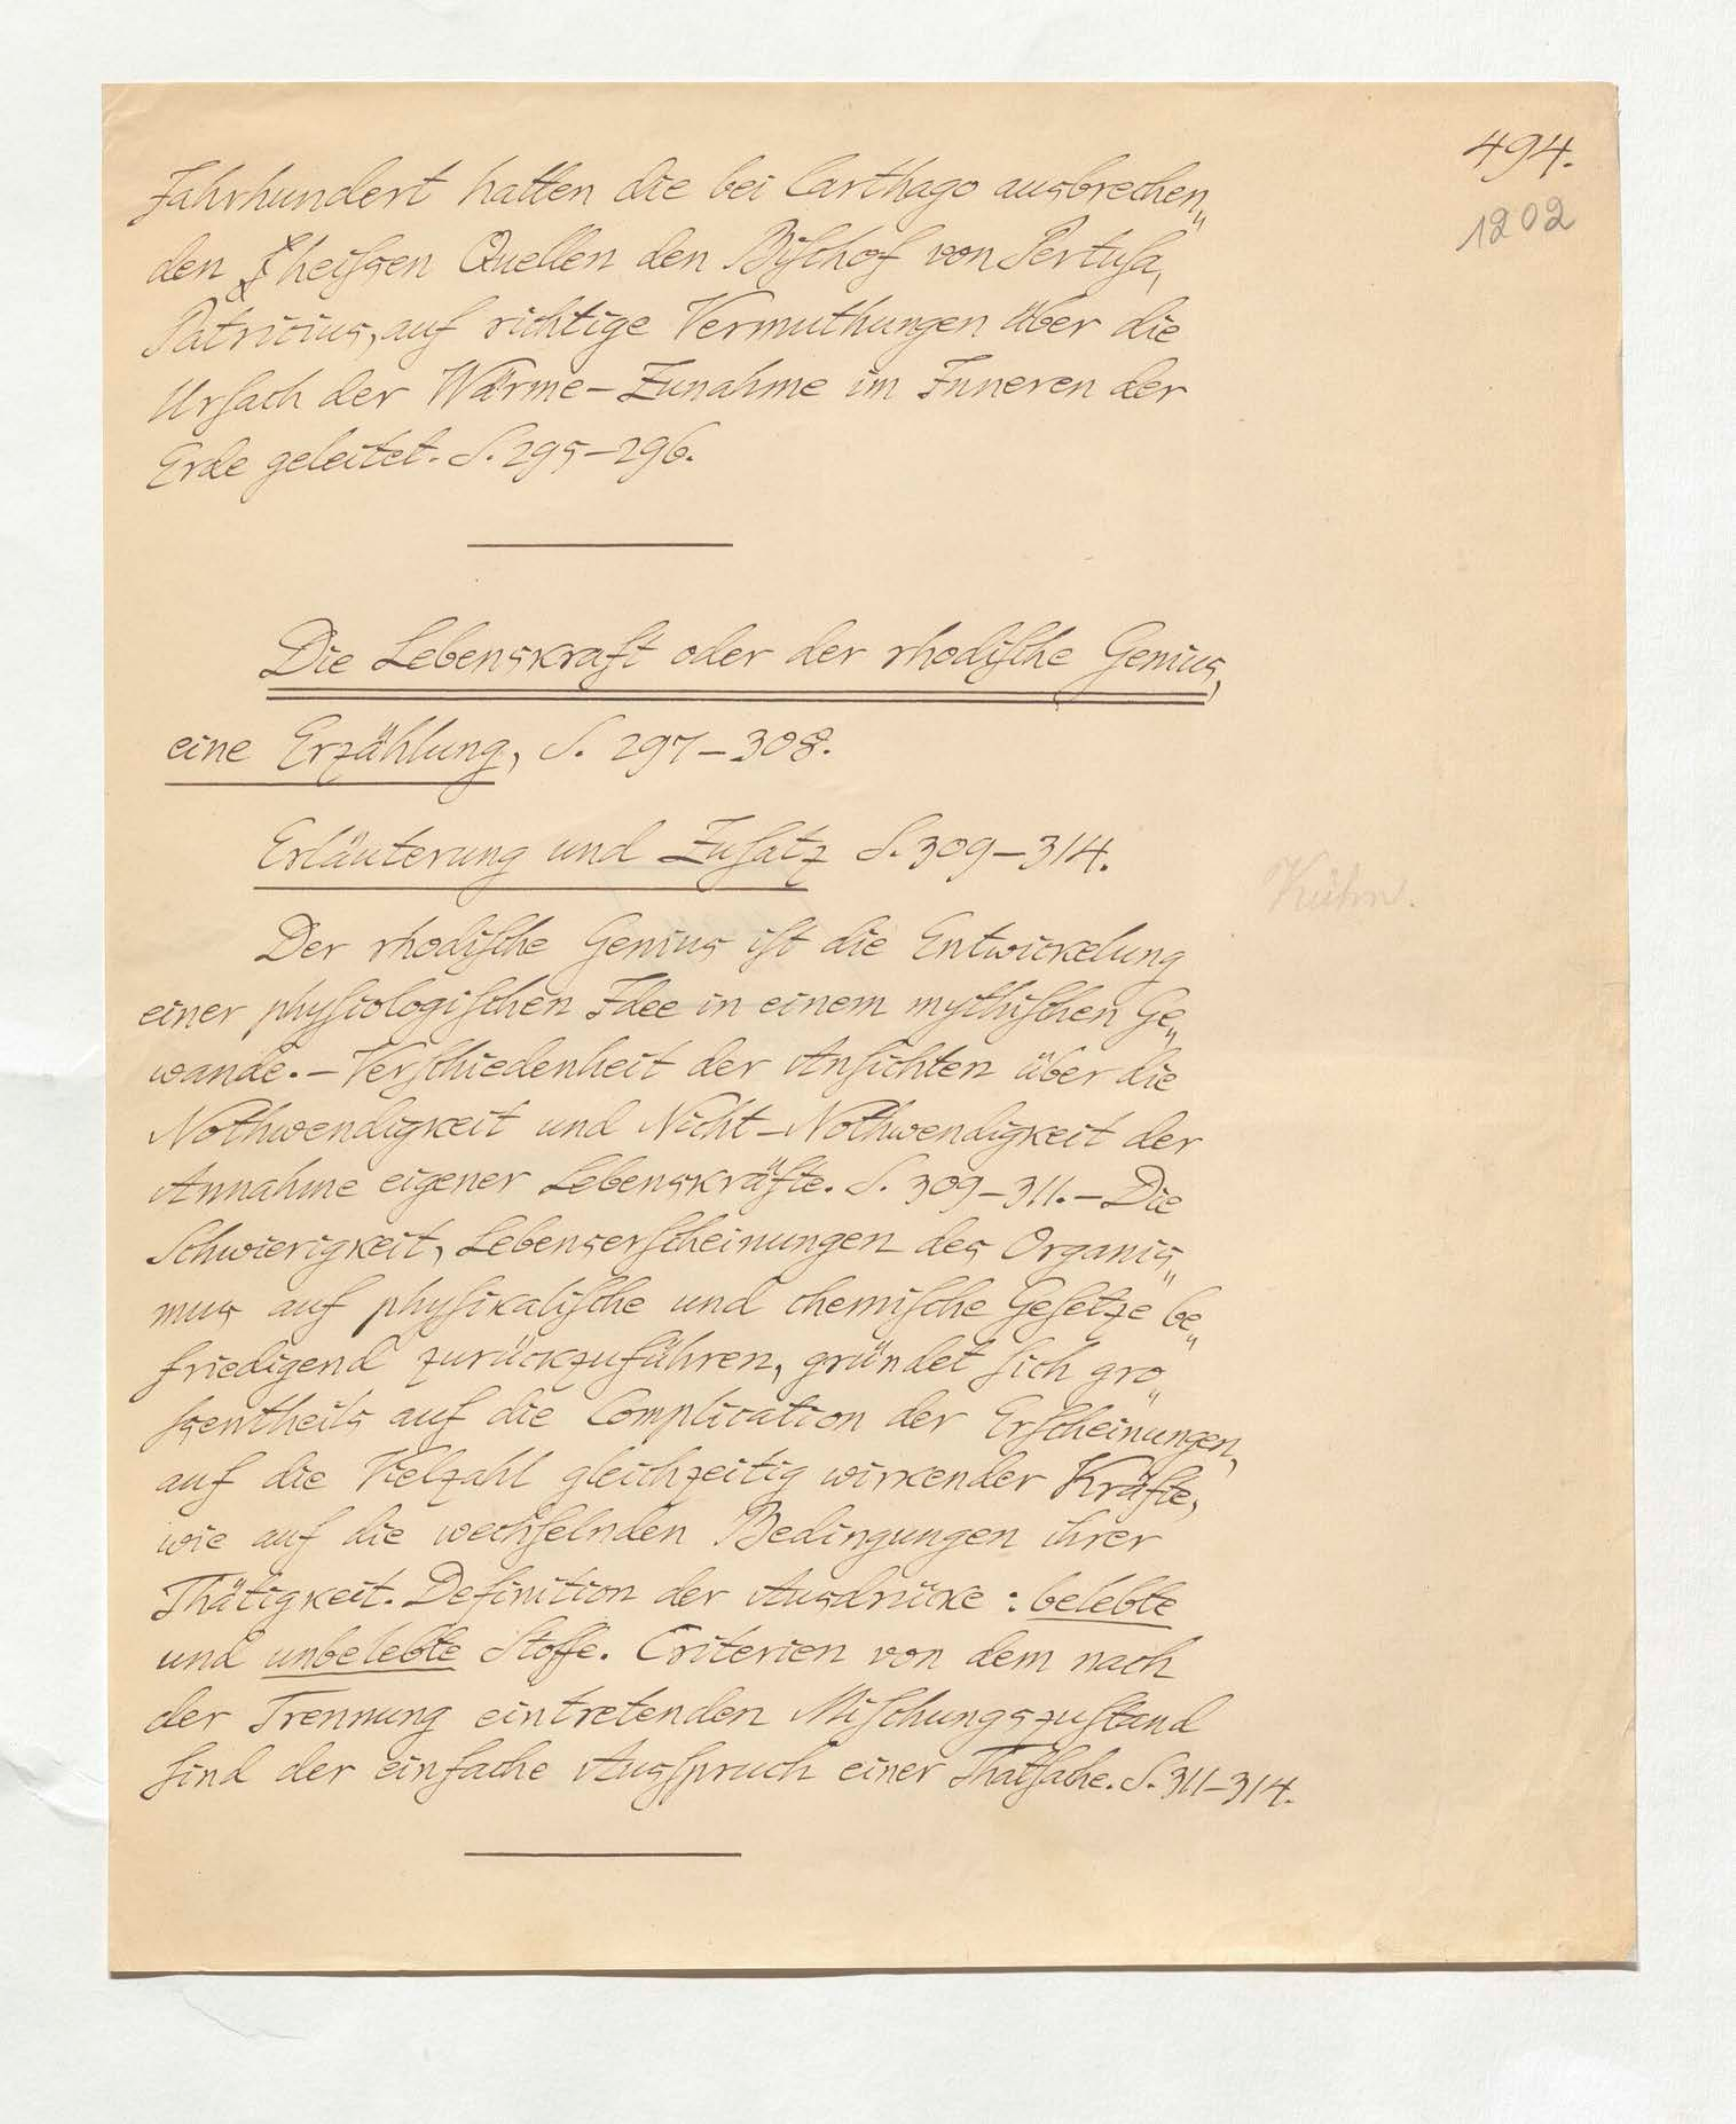 494.
1202
Jahrhundert hatten die bei Carthago ausbrechen„
den heiſsen Quellen den Biſchof von Pertuſa,
Patricius, auf richtige Vermuthungen über die
Urſach der Wärme-Zunahme im Inneren der
Erde geleitet. S. 295-296.
Die Lebenskraft oder der rhodiſche Genius,
eine Erzählung, S. 297-308.
Erläuterung und Zuſatz S. 309-314.
Kühn.
Der rhodiſche Genius iſt die Entwickelung
einer phyſiologiſchen Idee in einem mythiſchen Ge„
wande. - Verſchiedenheit der Anſichten über die
Nothwendigkeit und Nicht-Nothwendigkeit der
Annahme eigener Lebenskräfte. S. 309-311. - Die
Schwierigkeit, Lebenserſcheinungen des Organis„
mus auf phyſikaliſche und chemiſche Geſetze be„
friedigend zurückzuführen, gründet ſich gro„
ſsentheils auf die Complication der Erſcheinungen,
auf die Vielzahl gleichzeitig wirkender Kräfte,
wie auf die wechſelnden Bedingungen ihrer
Thätigkeit. Definition der Ausdrücke: belebte
und unbelebte Stoffe. Criterien von dem nach
der Trennung eintretenden Miſchungszuſtand
ſind der einfache Ausſpruch einer Thatſache. S. 311-314.